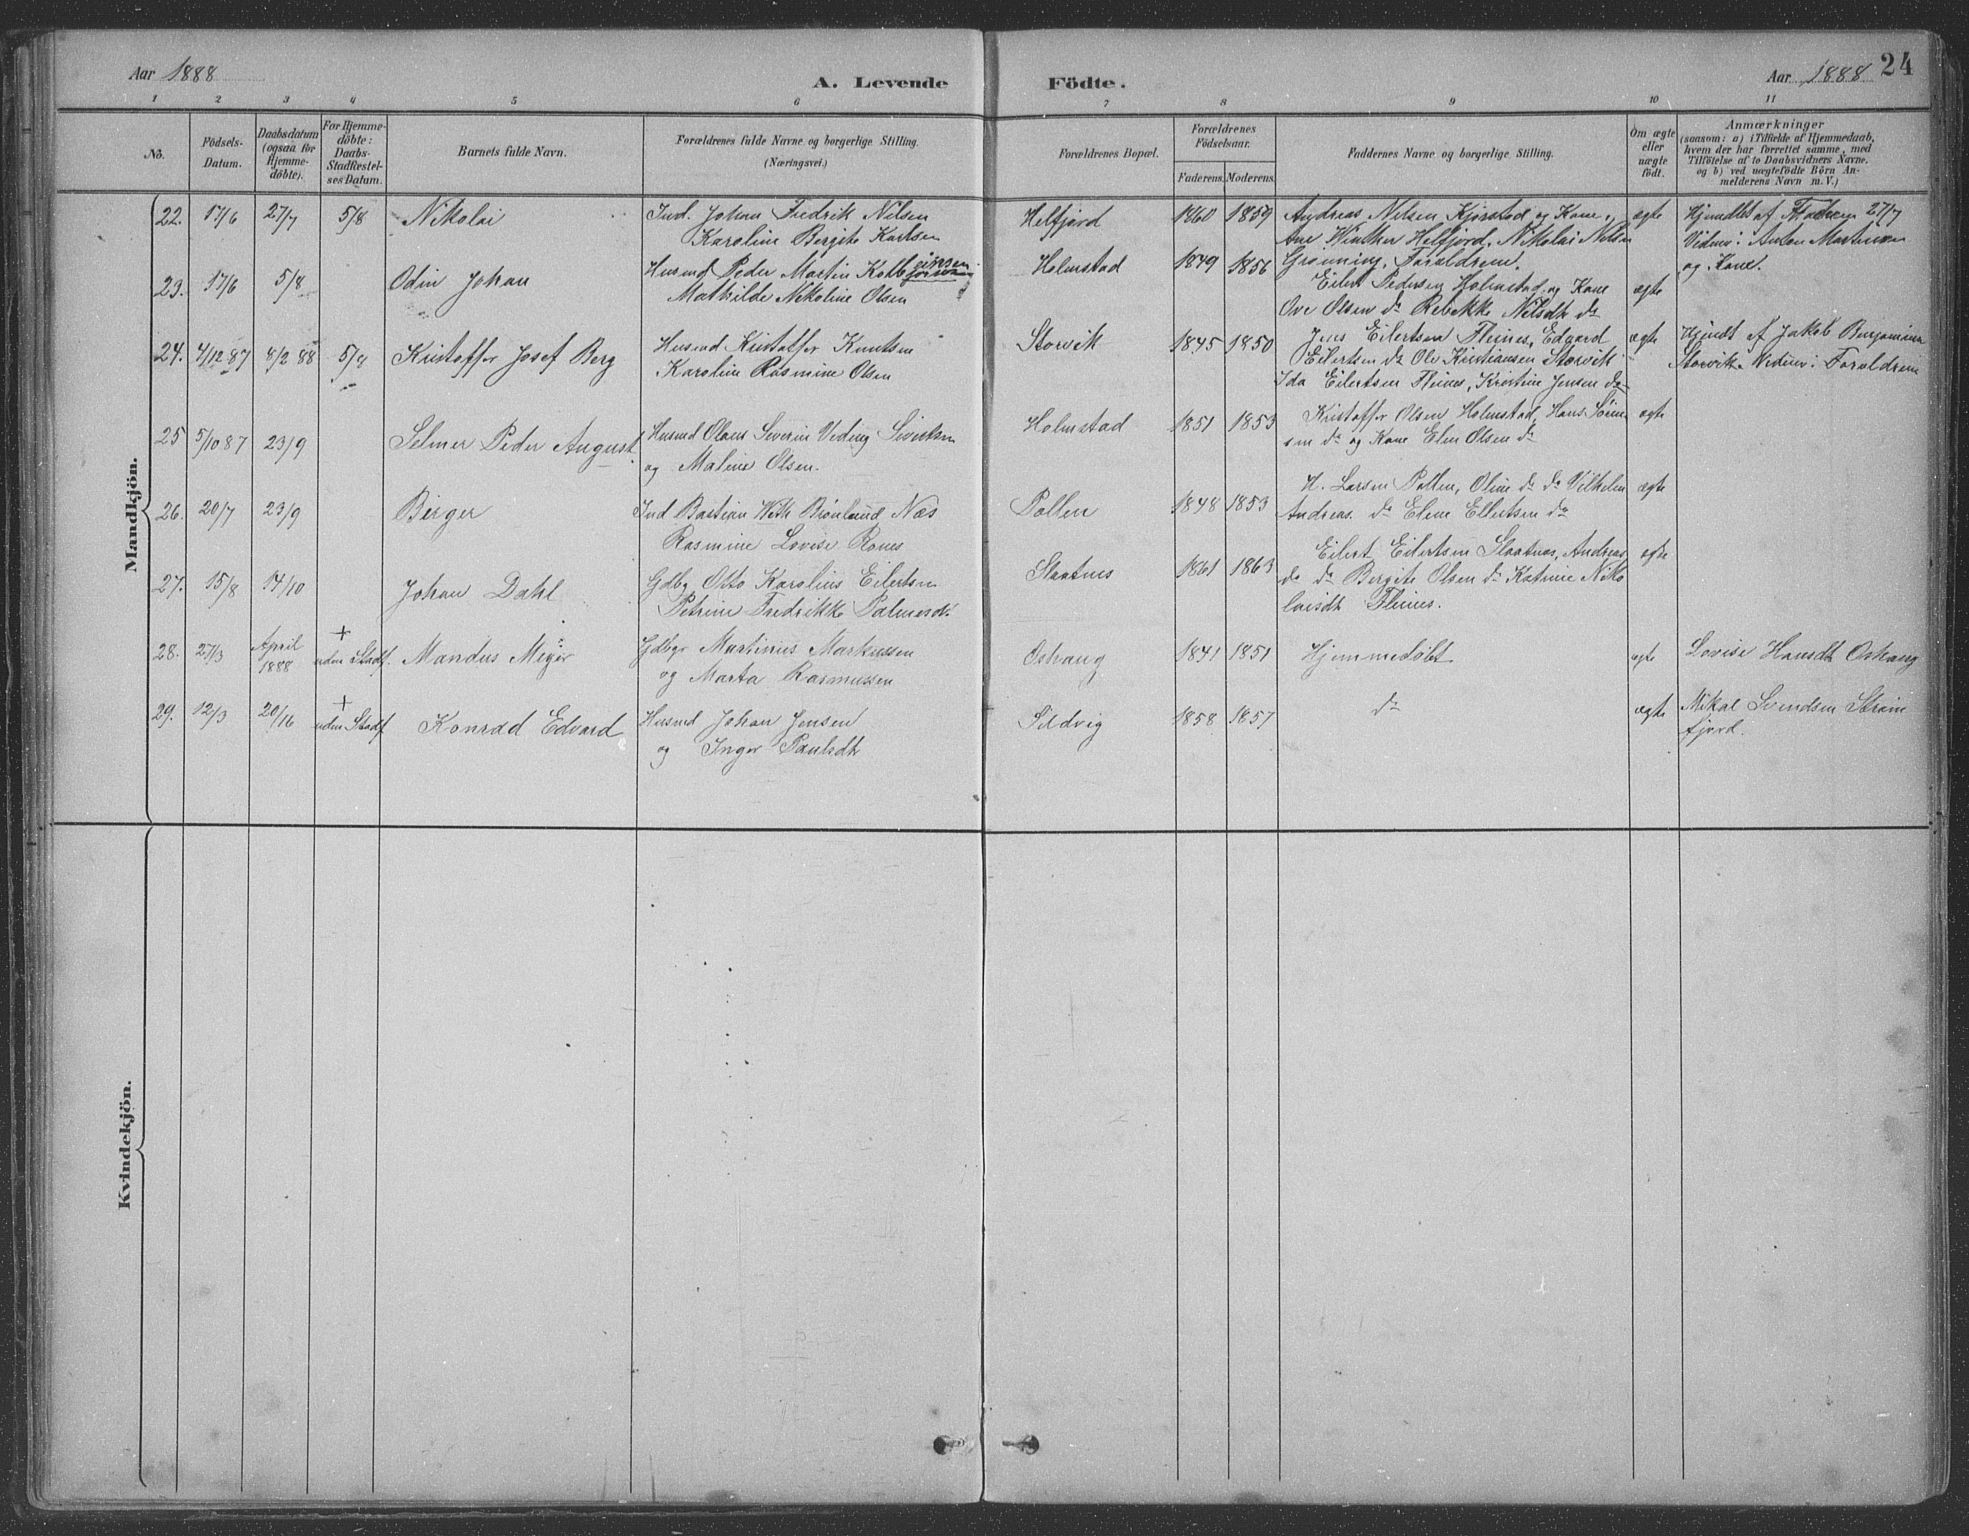 Aar 1888
A. Levende Födte.
Aar 1888 24
1 2 3 4 5 6 7 8 9 10 11
No.
Födsels-Datum.
Daabsdatum (ogsaa for Hjemmedøbte).
For Hjemmedøbte: Daabs-Stadfæstelses Datum.
Barnets fulde Navn.
Forældrenes fulde Navne og borgerlige Stilling. (Næringsvei.)
Forældrenes Bopæl.
Forældrenes Födselsaar.
Faderens. Moderens.
Faddernes Navne og borgerlige Stilling.
Om ægte eller uægte födt.
Anmærkninger
(saasom: a) i Tilfælde af Hjemmedaab, hvem der har forrettet samme, med Tilföielse af to Daabsvidners Navne. og b) ved uægtefödte Börn Anmelderens Navn m. V.)
Mandkjön.
22. 17/6 27/7 5/8 Nikolai
Ind. Johan Fredrik Nilsen
Karoline Bergite Karlsen
Helfjord 1860 1859
Andreas Nilsen Kjørstad og Kone,
Ane Winther Helfjord, Nikolai Nilsen
Grønning, Forældrene.
ægte
Hjemdbt af Faderen 27/7
Vidner: Anton Martinsen
og Kone.
23. 17/6 5/8 Odin Johan
Husmd Peder Martin Kolbjørnsen
Mathilde Nikoline Olsen
Holmstad 1849 1856
Eilert Pedersen Holmstad og Kone
Ove Olsen do Rebekke Nilsdt do
ægte
24. 4/12 87 8/2 88 5/8 Kristoffer Josef Berg
Husmd Kristoffer Knutsen
Karoline Rasmine Olsen
Storvik 1845 1850
Jens Eilertsen Fleines, Edvard
Eilertsen do Ole Kristiansen Storvik
Ida Eilertsen Fleines, Kristine Jensen do
ægte
Hjmdt af Jakob Benjaminsen
Storvik. Vidner: Forældrene
25 5/10 87 23/9 Selmer Peder August
Husmd Olaus Severin Sivertsen
og Maline Olsen.
Holmstad 1851 1853
Kristoffer Olsen Holmstad, Hans Søren
sen do og Kone Elen Olsen do
ægte
26. 20/7 23/9 Birger
Ind Bastian With Brønlund Næs
Rasmine Lovise Rønes
Pollen 1848 1853
H. Larsen Pollen, Oline do do Vilhelm
Andreas. do Elene Ellertsen do
ægte
27. 15/8 14/10 Johan Dahl
Gdbg Otto Karolius Eilertsen
Petrine Fredrikke
Slaatnes 1861 1863
Eilert Eilertsen Slaatnes, Andreas
do do Bergite Olsen do Katrine Niko
laisdt Fleines.
ægte
28. 27/3 April 1888 + uden Stadf. Mandus Meyer
Gdbgr Martinus Markussen
og Marta Rasmussen
Oshaug 1841 1851 Hjemmedøbt ægte
Lovise Hansdt Oshaug
29. 12/3 20/16 + uden Stadf Konrad Edvard
Husmd Johan Jensen
og Inger Paulsdt
Sildvig 1858 1857 do ægte
Mikal Svendsen Strøm
fjord.
Kvindekjön.